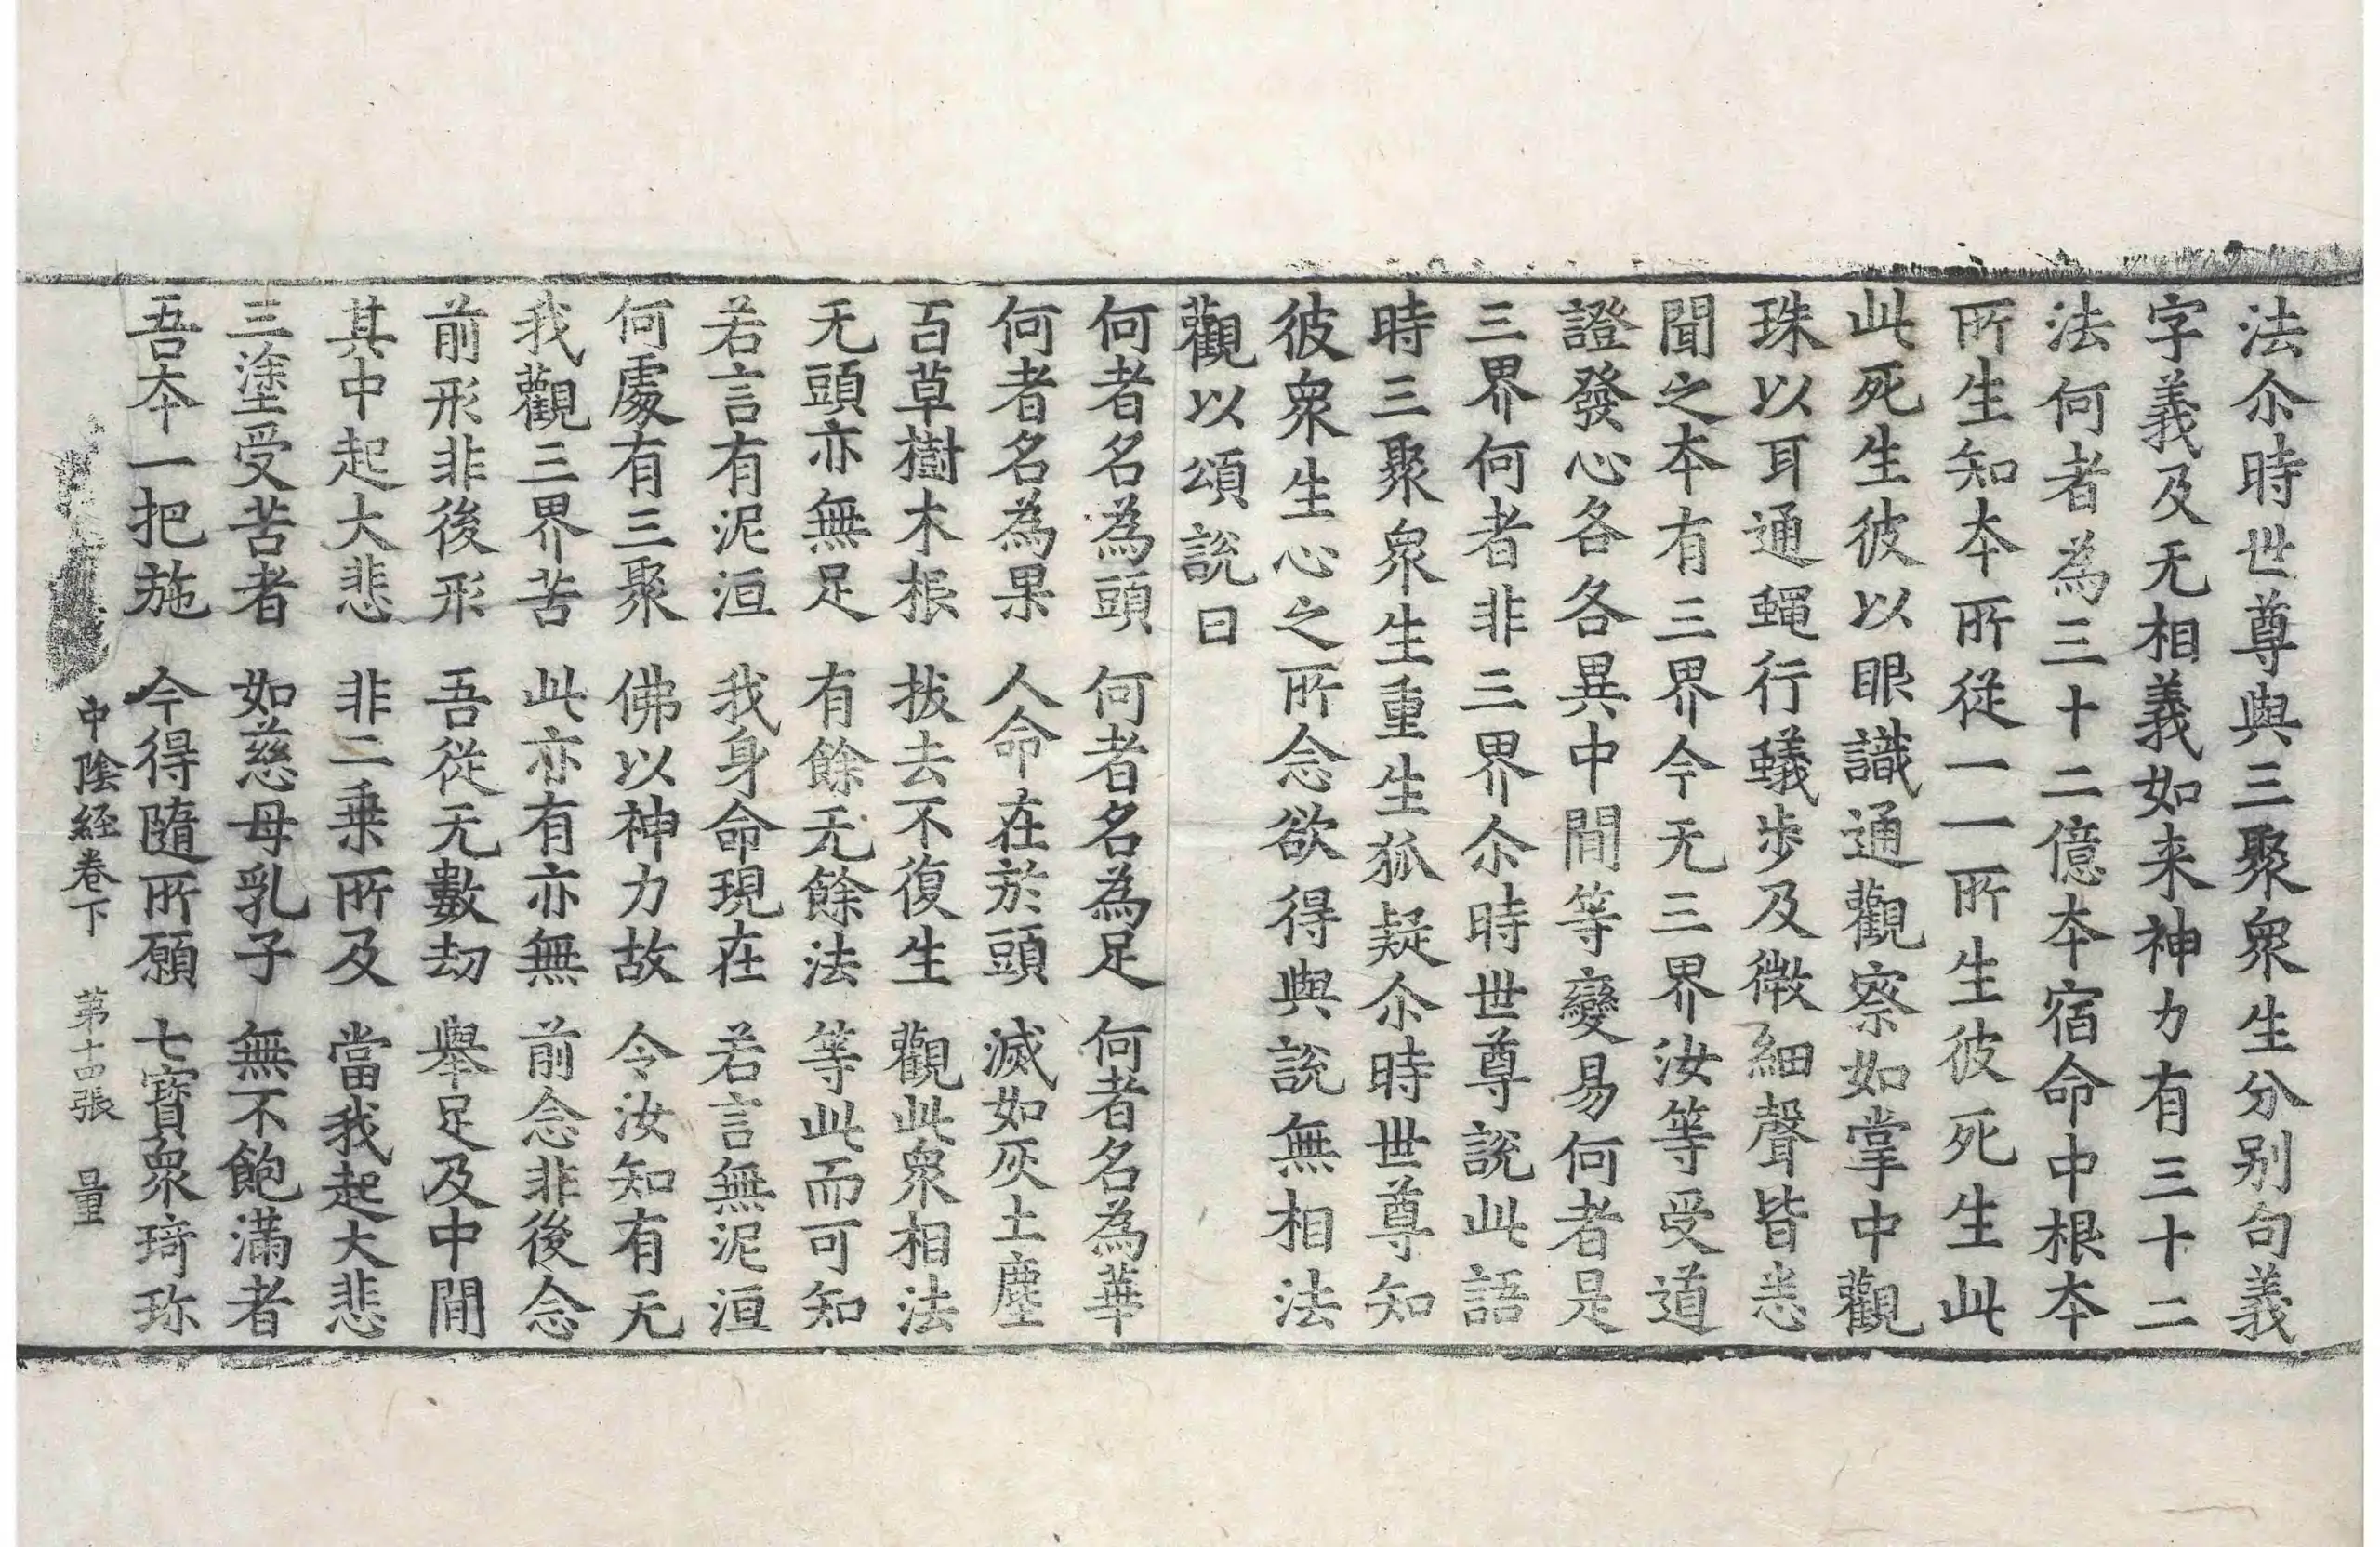 法尒時世尊與三聚衆生分别句義
字義及无相義如来神力有三十二
法何者為三十二億夲宿命中根夲
所生知夲所從一一所生彼死生此
此死生彼以眼識通觀察如掌中觀
珠以耳通蠅行蟻步及微細聲皆悉
聞之夲有三界今无三界汝等受道
證發心各各異中間等變易何者是
三界何者非三界尒時世尊說此語
時三聚衆生重生狐疑尒時世尊知
彼衆生心之所念欲得與說無相法
觀以頌說曰
何者名為頭　何者名為足　何者名為華
何者名為果　人命在於頭　滅如灰土塵
百草樹木根　拔去不復生　觀此衆相法
无頭亦無足　有餘无餘法　等此而可知
若言有泥洹　我身命現在　若言無泥洹
何處有三聚　佛以神力故　令汝知有无
我觀三界苦　此亦有亦無　前念非後念
前形非後形　吾從无數劫　舉足及中間
其中起大悲　非二乗所及　當我起大悲
三塗受苦者　如慈母乳子　無不飽滿者
吾夲一把施　今得隨所願　七寶衆琦珎
中陰経卷下　第十四張　量